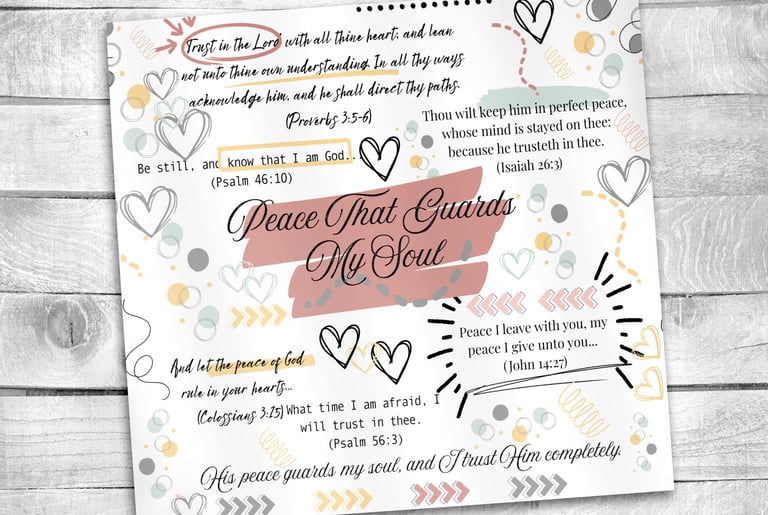 Trust in the Lord with all thine heart, and lean
not unto thine own understanding. In all thy ways
acknowledge him, and he shall direct thy paths.
(Proverbs 3:5-6)
Thou wilt keep him in perfect peace,
whose mind is stayed on thee:
because he trusteth in thee.
(Isaiah 26:3)
Be still, and know that I am God...
(Psalm 46:10)
Peace That Guards
My Soul
Peace I leave with you, my
peace I give unto you...
(John 14:27)
And let the peace of God
rule in your hearts...
(Colossians 3:15)
What time I am afraid, I
will trust in thee.
(Psalm 56:3)
His peace guards my soul, and I trust Him completely.